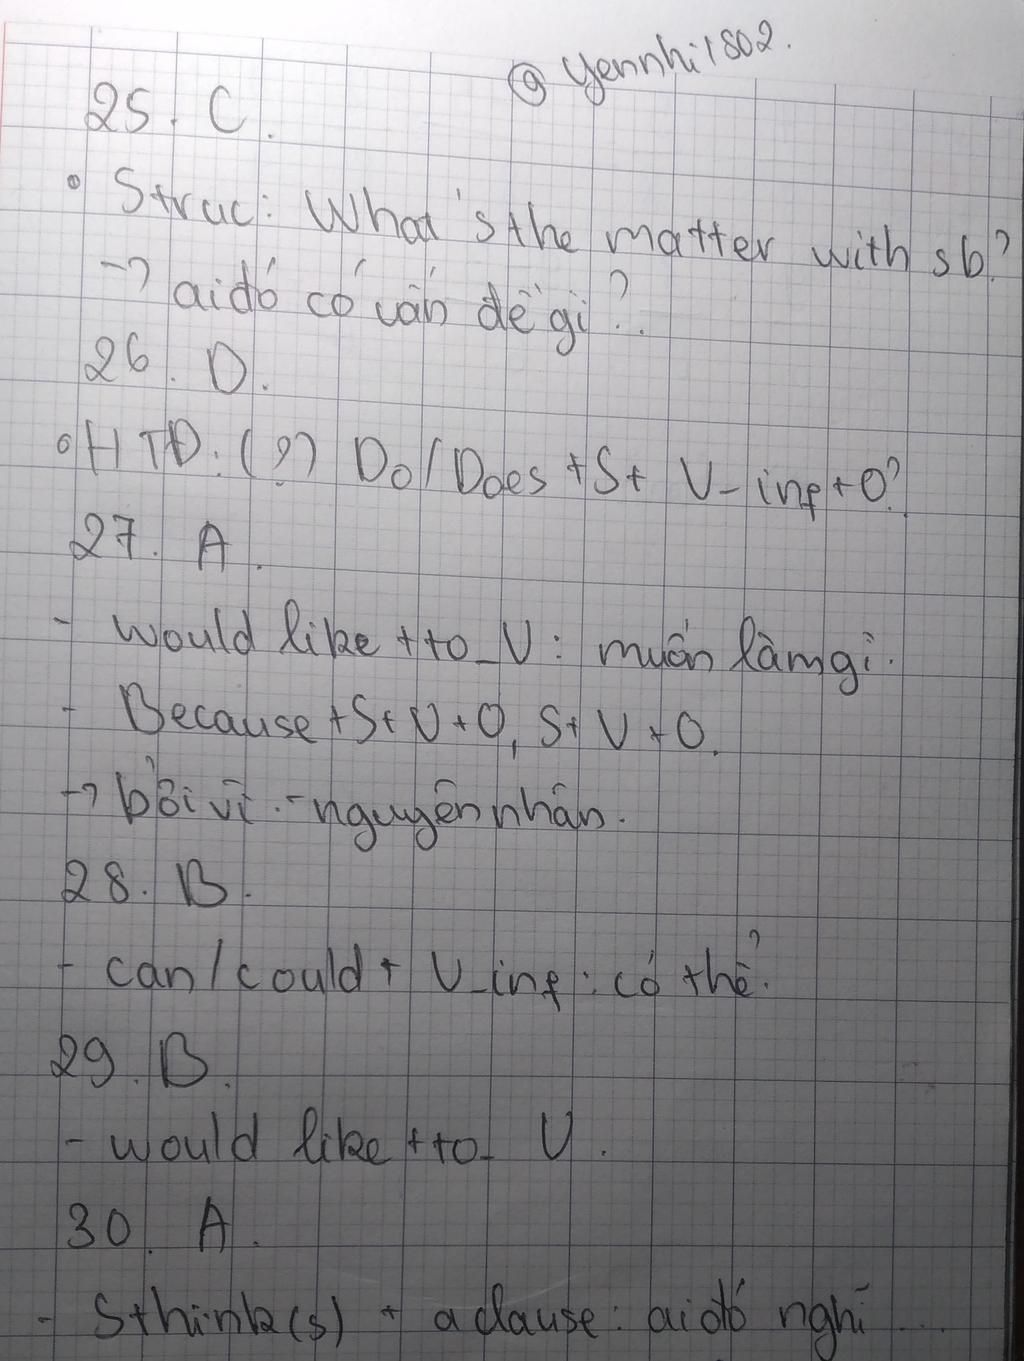 @ yennhi1802.
25. C.
• Struc: What's the matter with sb?
→ ai đó có vấn đề gì?..
26. D.
• HTĐ: (?) Do/Does + S + V-inf + O?
27. A.
- would like + to_V: muốn làm gì.
- Because + S + V + O, S + V + O.
→ bởi vì - nguyên nhân.
28. B.
- can/could + V_inf: có thể.
29. B.
- would like + to_ V.
30. A.
- S think(s) + a clause: ai đó nghĩ ...